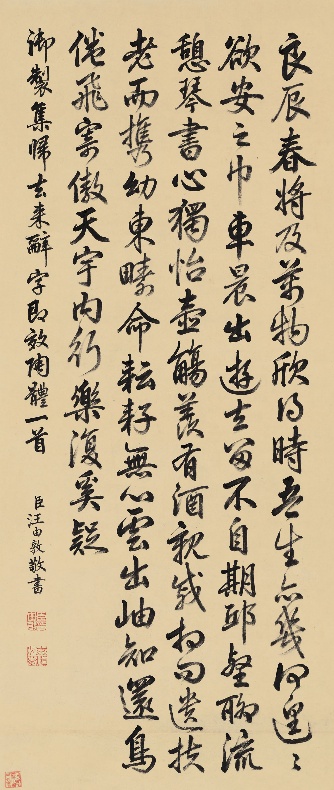 良辰春將及萬物欣得時吾生亦幾何遑〻
欲安之巾車晨出遊去留不自期邱壑聊流
憩琴書心獨怡壺觴羨有酒親戚相問遺扶
老而攜幼東疇命耘耔無心雲出岫知還鳥
倦飛寄傲天宇內行樂復奚疑
御製集歸去來辭字即效陶體一首
臣汪由敦敬書